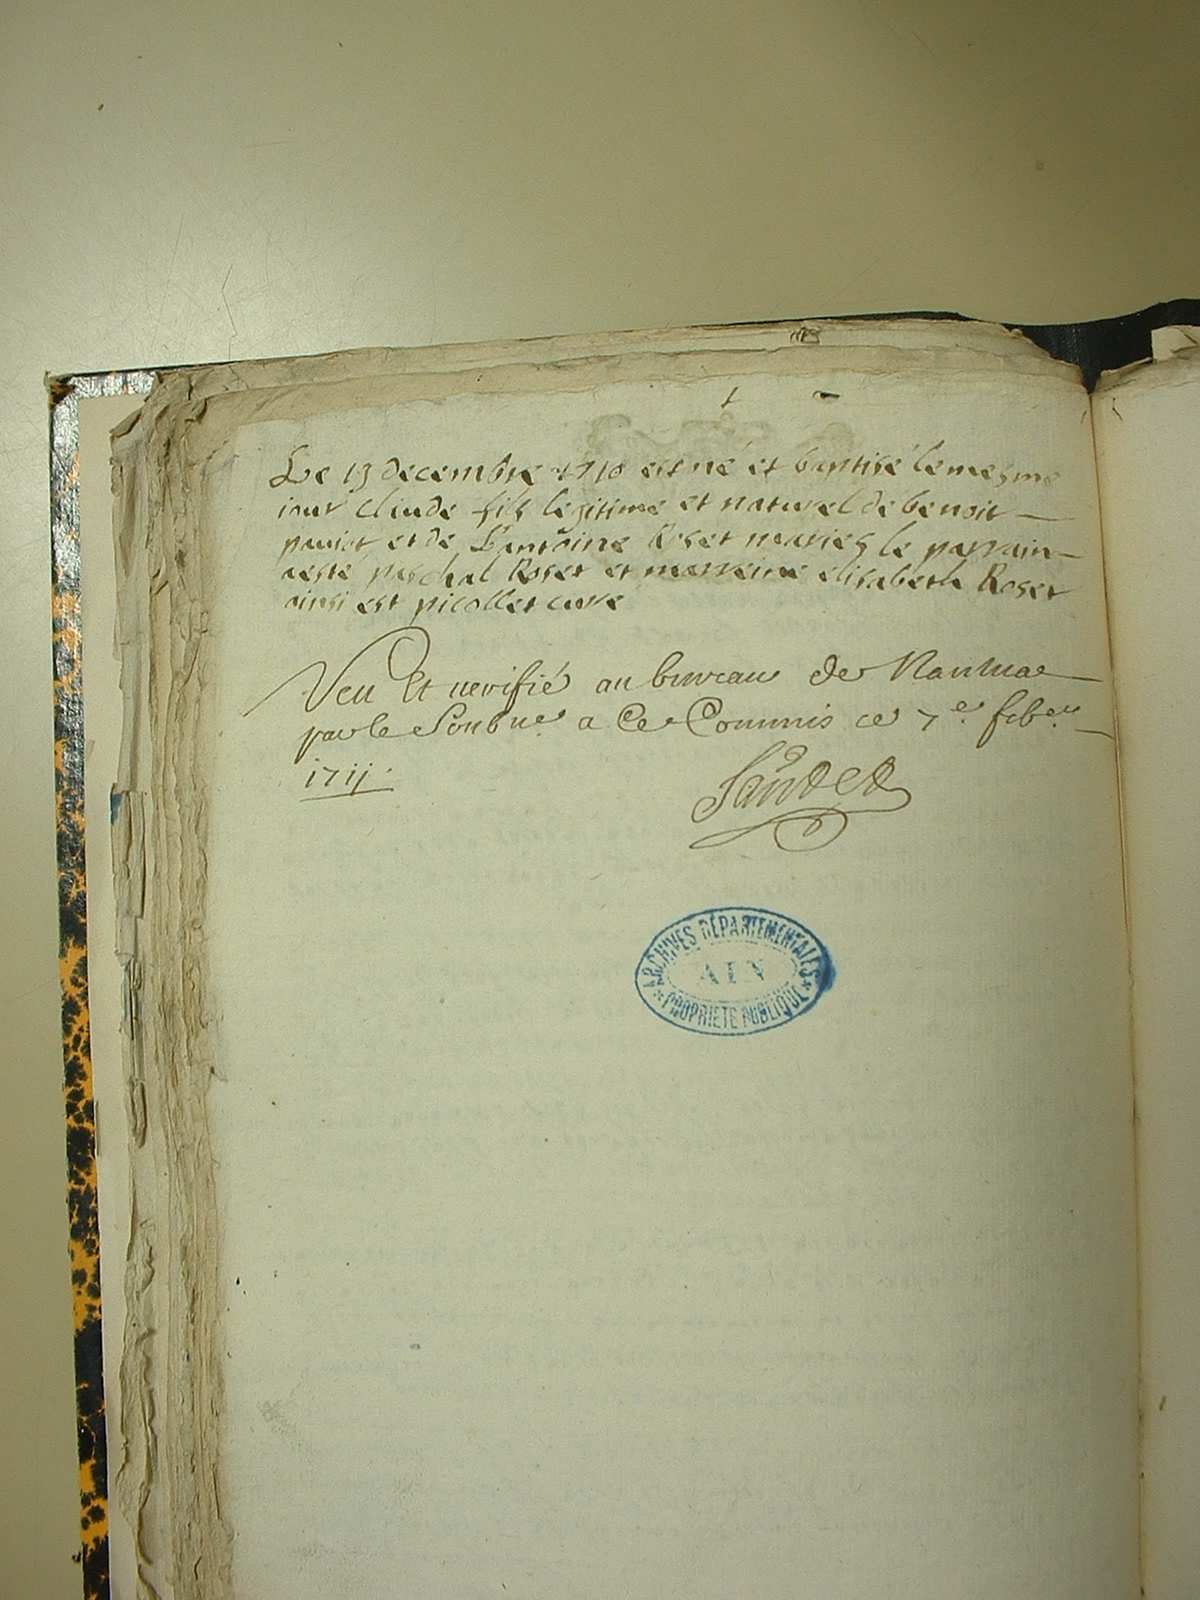 Le 13 decembre 1710 est né et baptisé le mesme
iour Claude fils legitime et naturel de benoit
paviot et de Lantoine Roset mariés le parrain
aesté paschal Roset et marreine elisabeth Roset
ainsi est picollet curé
Veu Et verifié au bureau de Nantua
par le Soubne. a Ce Commis ce 7e. feber.
1711.
ARCHIVES DÉPARTEMENTALES
AIN
* PROPRIÉTÉ PUBLIQUE *